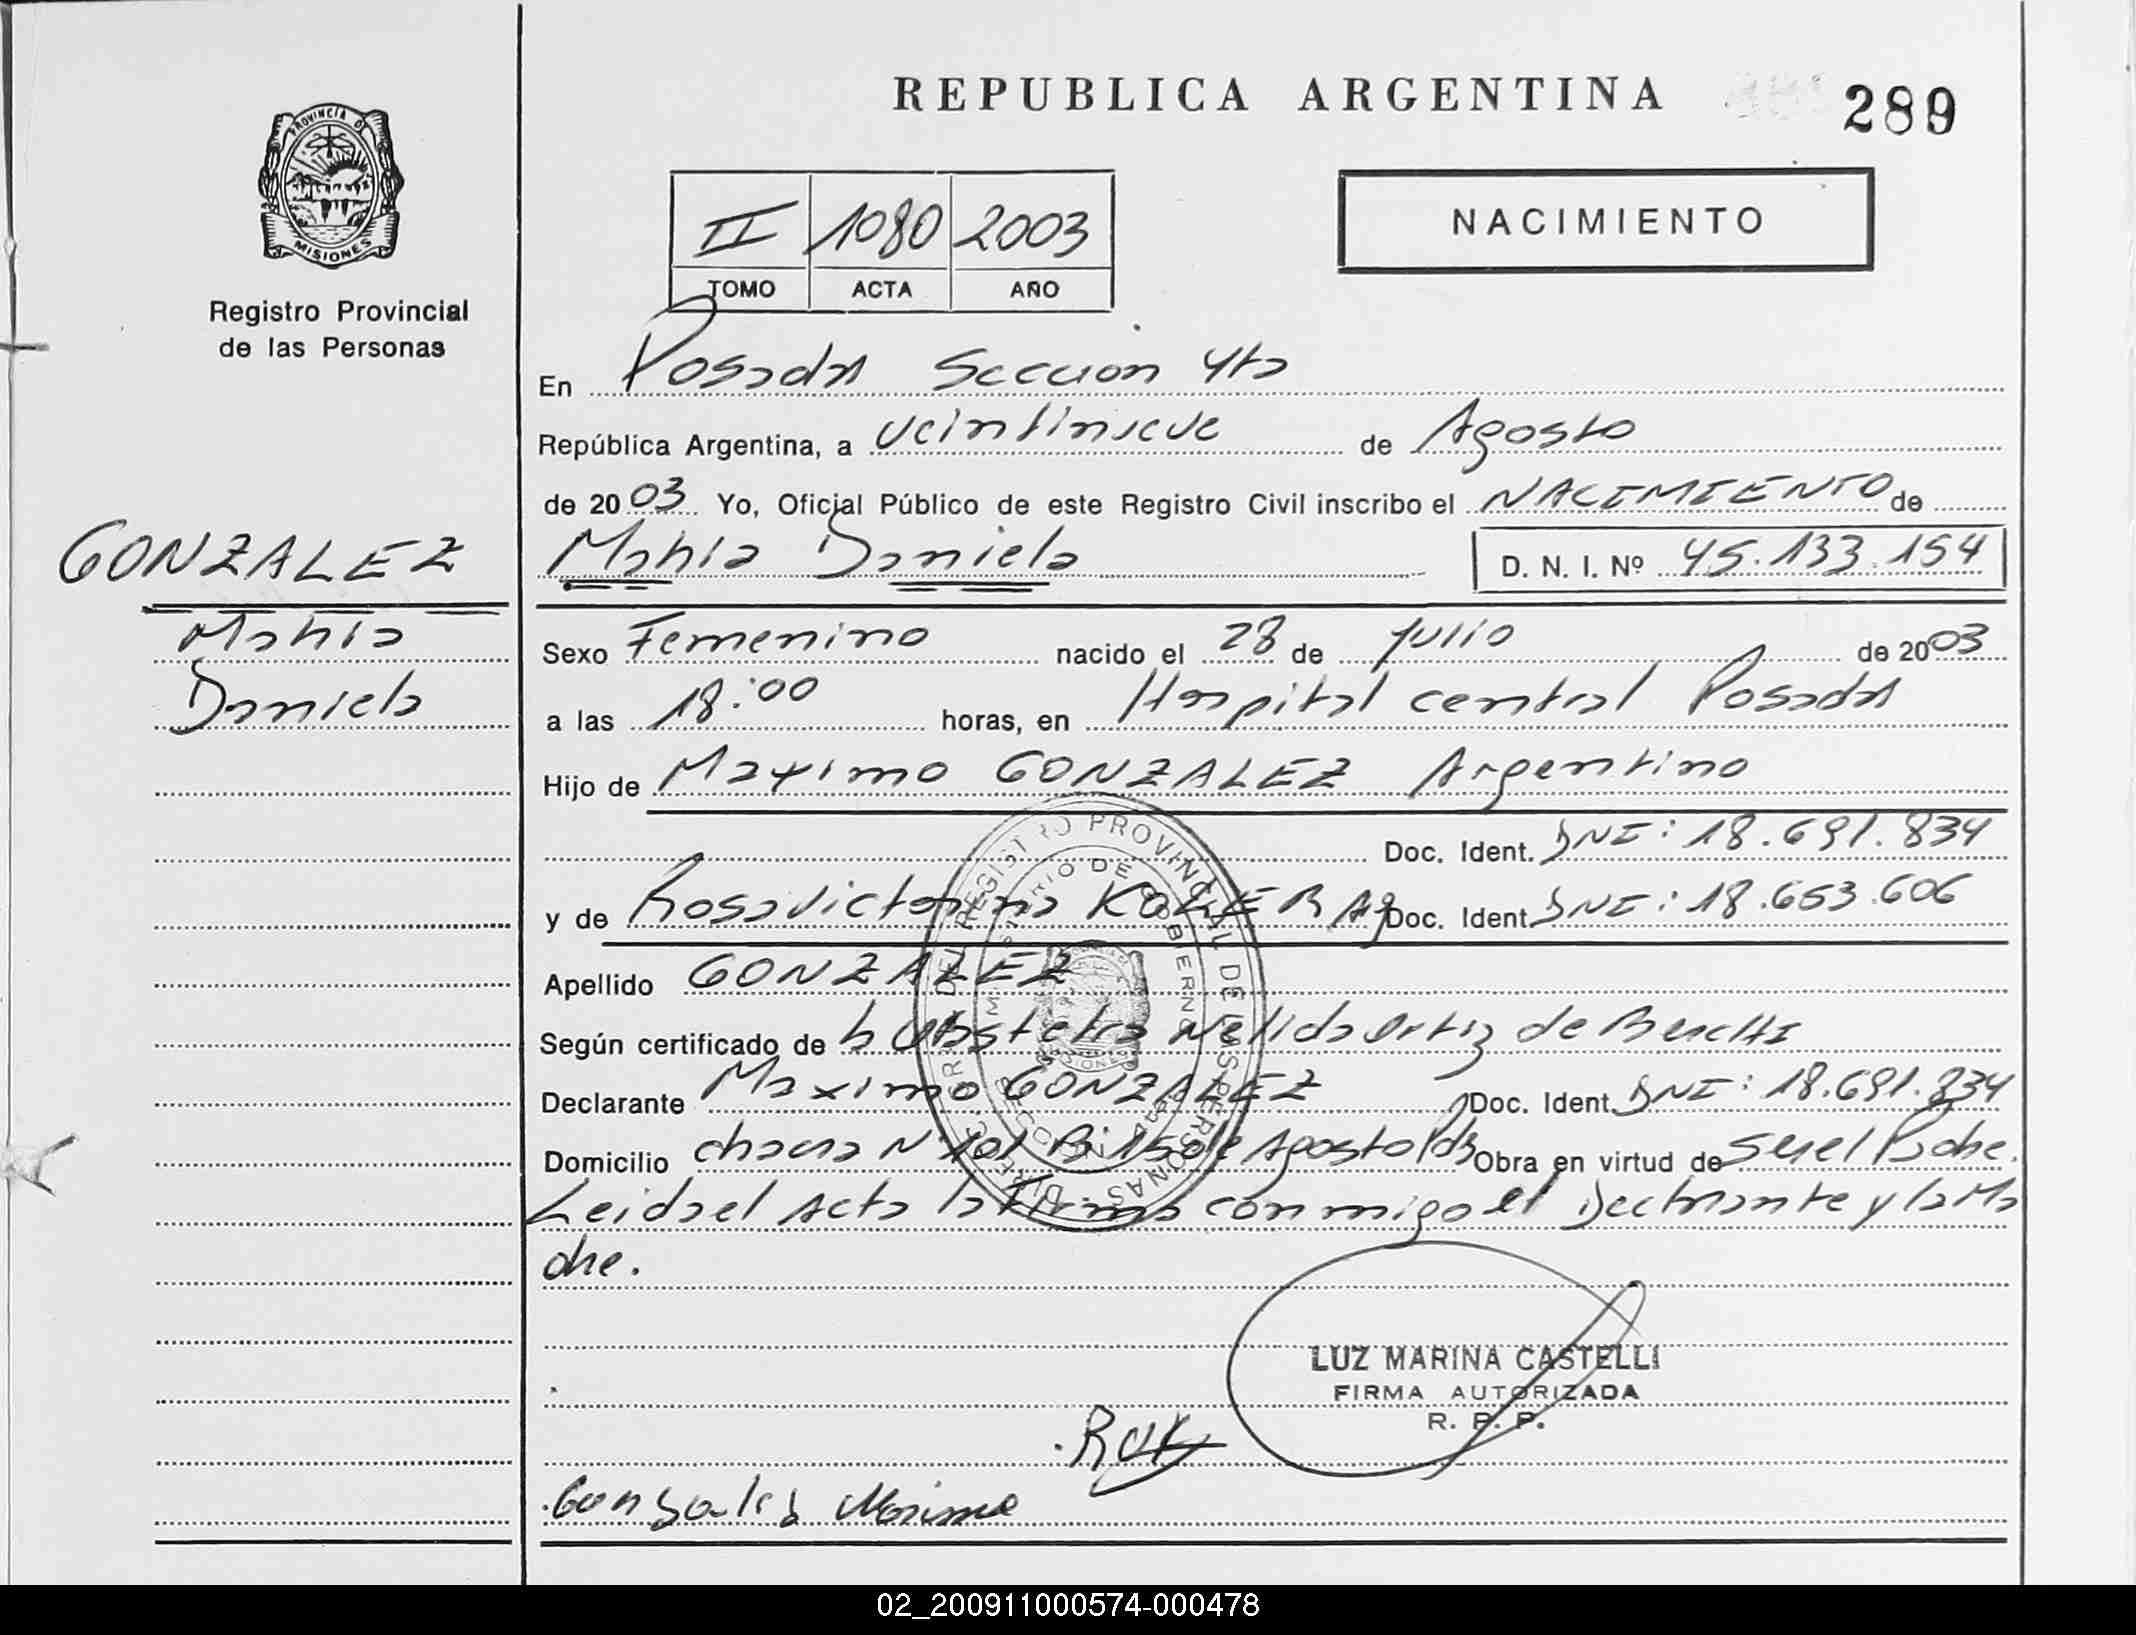 REPUBLICA ARGENTINA
289
PROVINCIA DE
MISIONES
Registro Provincial
de las Personas
II 1080 2003
TOMO ACTA AÑO
NACIMIENTO
En Posadas Seccion 4ta
República Argentina, a veintinueve de Agosto
de 2003 Yo, Oficial Público de este Registro Civil inscribo el NACIMIENTO de
GONZALEZ
Daniela
Daniela D. N. I. Nº 45.133.154
Sexo Femenino nacido el 28 de julio de 2003
a las 18:00 horas, en Hospital central Posadas
Hijo de Maximo GONZALEZ Argentino
Doc. Ident. DNI: 18.691.834
y de Rosa Doc. Ident. DNI: 18.653.606
Apellido GONZALEZ
Según certificado de Nelida Ortiz de
Declarante Maximo GONZALEZ Doc. Ident. DNI: 18.691.834
Domicilio chacra N 101 Obra en virtud de ser el Padre.
Leida el Acta la Firma conmigo el Declarante y la Ma
dre.
LUZ MARINA CASTELLI
FIRMA AUTORIZADA
R. P. P.
02_200911000574-000478